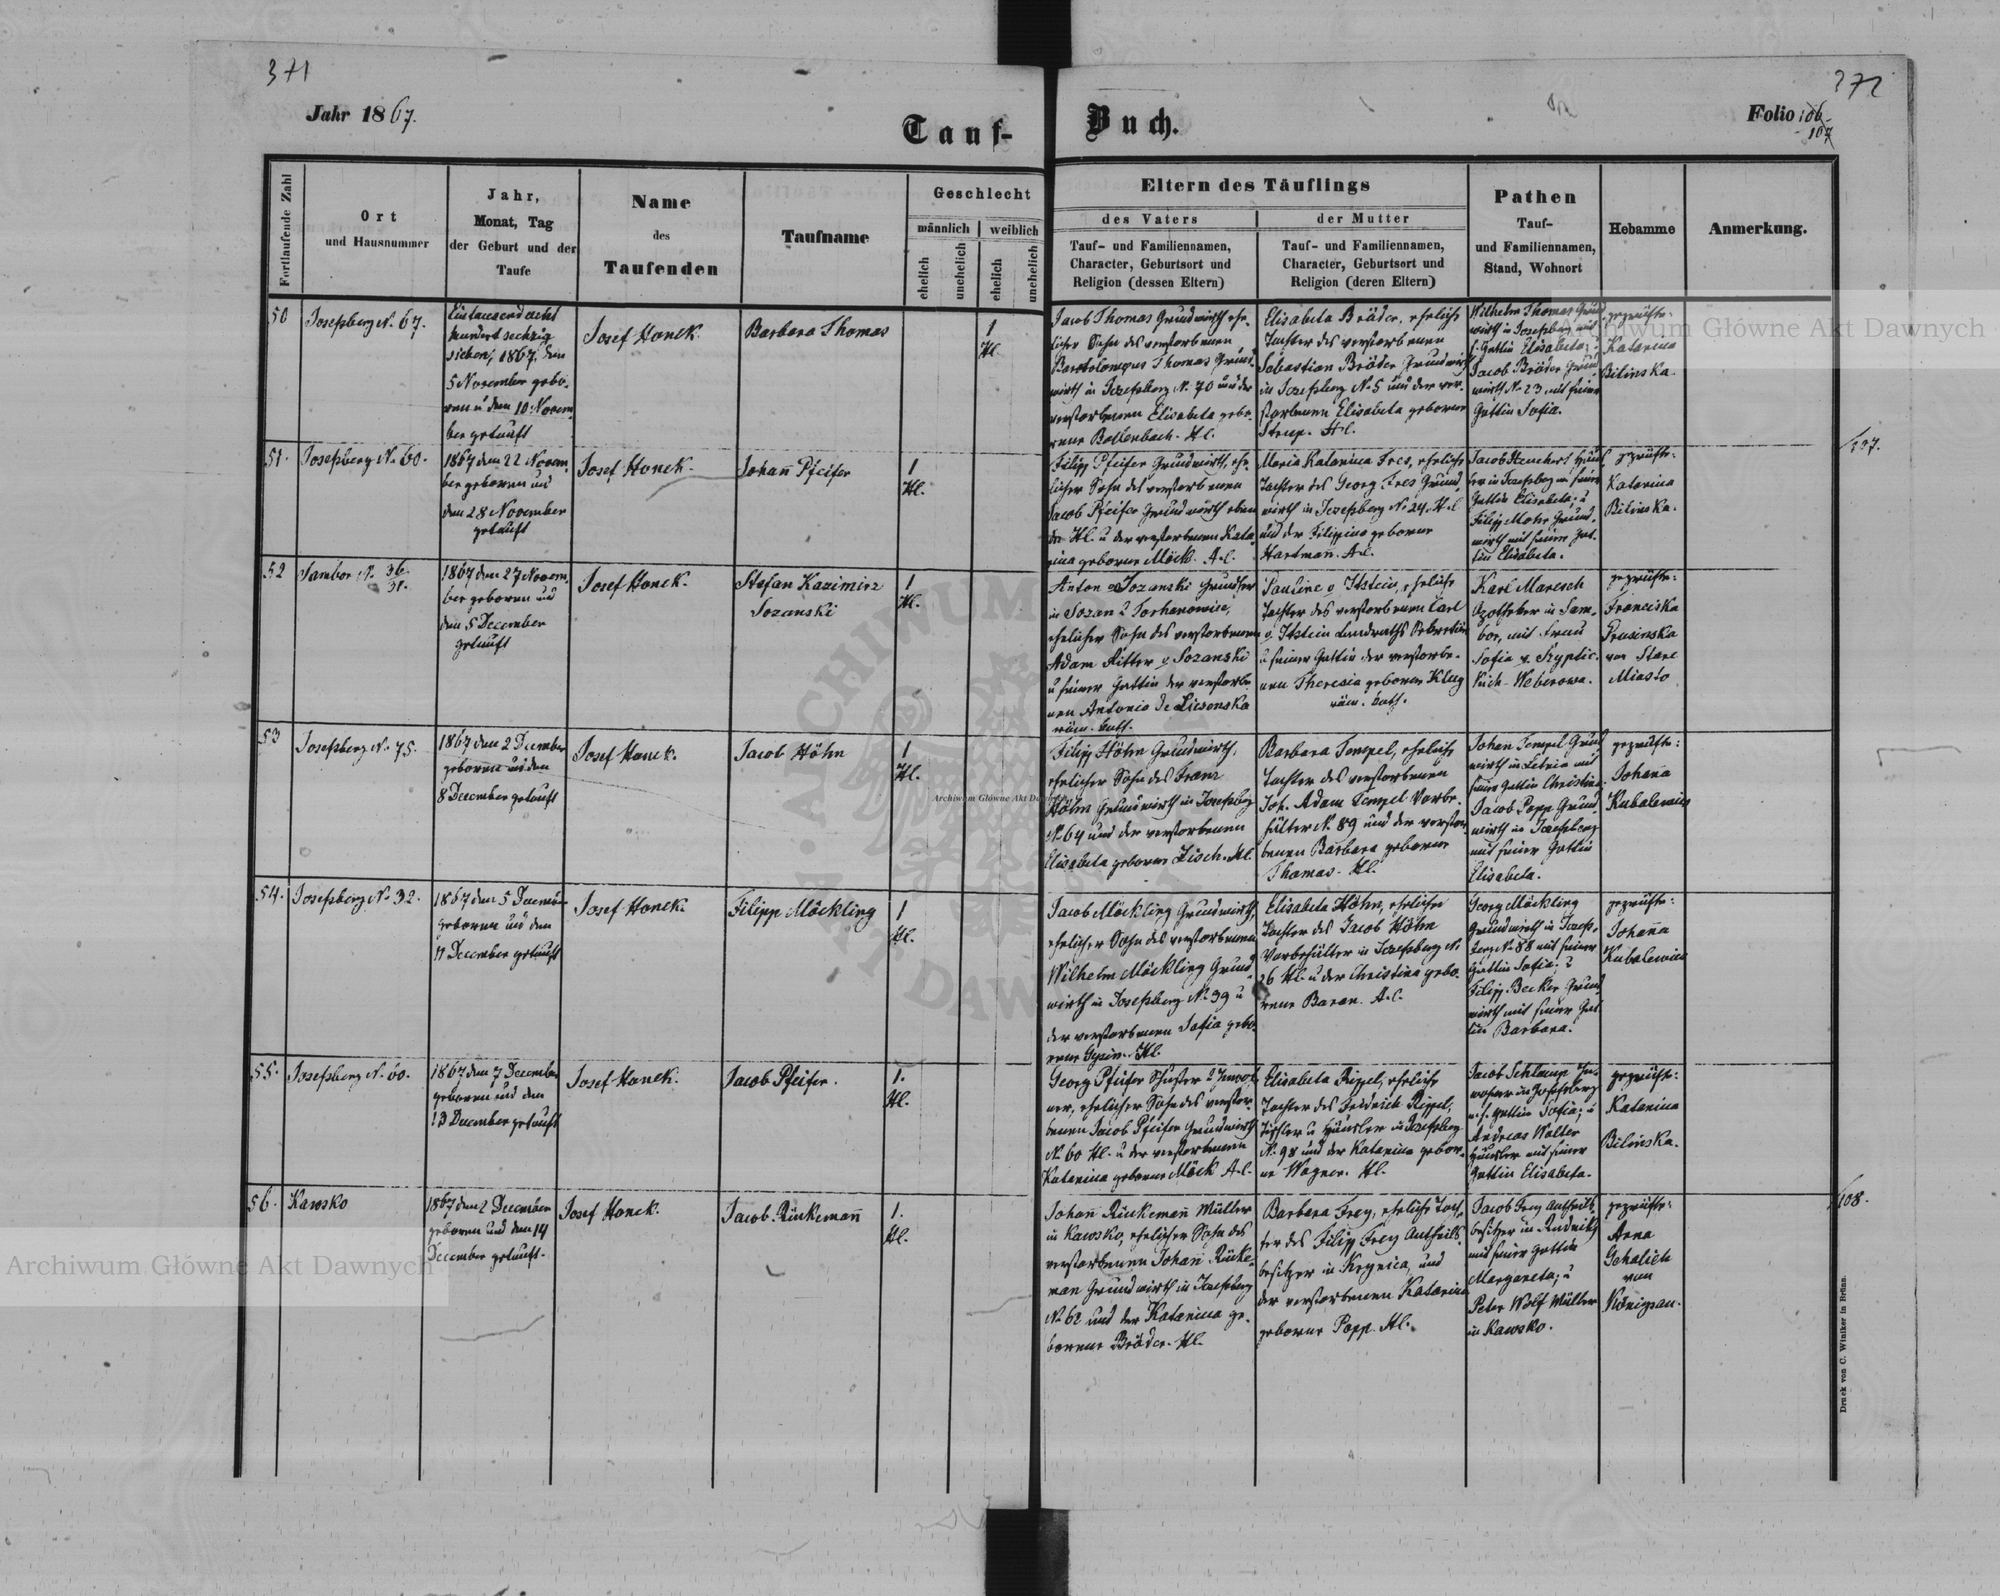 371
372
Jahr 1867.
Tauf-
Buch.
Folio 106
107
Fortlaufende Zahl
Ort
und Hausnummer
Jahr,
Monat, Tag
der Geburt und der
Taufe
Name
des
Taufenden
Taufname
Geschlecht
männlich
weiblich
ehelich
unehelich
ehelich
unehelich
Eltern des Täuflings
des Vaters
der Mutter
Tauf- und Familiennamen,
Character, Geburtsort und
Religion (dessen Eltern)
Tauf- und Familiennamen,
Character, Geburtsort und
Religion (deren Eltern)
Pathen
Tauf-
und Familiennamen,
Stand, Wohnort
Hebamme
Anmerkung.
50
Josefsberg N. 67.
Eintausend acht
hundert sechzig
sieben, 1867, den
5 November gebo-
ren u den 10. Novem-
ber getauft
Josef Hanek.
Barbara Thomas
1
Hl.
Jacob Thomas Grundwirth ehe-
licher Sohn des verstorbenen
Bartolomeus Thomas Grund-
wirth in Josefsberg N. 70 und der
verstorbenen Elisabeta gebo-
rene Bollenbach. Hl.
Elisabeta Bräder, eheliche
Tochter des verstorbenen
Sebastian Bräder Grundwirth
in Josefsberg N. 5 und der ver-
storbenen Elisabeta geborene
Hl.
Wilhelm Thomas Grund-
wirth in Josefsberg mit
s. Gattin Elisabeta; u
Jacob Bräder Grund-
wirth N. 23 mit seiner
Gattin Sofia.
geprüfte:
Katarina
Bilinska.
51.
Josefsberg N. 60.
1867 den 22 Novem-
ber geboren und
den 28 November
getauft
Josef Hanek.
Johañ Pfeifer
1
Hl.
Filipp Pfeifer Grundwirth, ehe-
licher Sohn des verstorbenen
Jacob Pfeifer Grundwirth eben
da Hl. u der verstorbenen Kata-
rina geborene Möck. A.C.
Maria Katarina Fres, eheliche
Tochter des Georg Fres Grund-
wirth in Josefsberg N. 24. Hl
und der Filippine geborene
Hartmañ. A.C.
in Josefsberg mit seiner
Gattin Elisabeta; u
Filipp Mohr Grund-
wirth mit seiner Gat-
tin Elisabeta.
geprüfte:
Katarina
Bilinska.
52
Sambor N. 36.
31.
1867 den 27 Novem-
ber geboren und
den 5 December
getauft
Josef Hanek.
Stefan Kazimirz
Sozanski
1
Hl.
Anton v Sozanski
in Sozan
ehelicher Sohn des verstorbenen
Adam Ritter v Sozanski
u seiner Gattin der verstorbe-
nen Antonia de
röm. kath.
Pauline v Itstein, eheliche
Tochter des verstorbenen Carl
v. Itstein Landraths Sekretär
u seiner Gattin der verstorbe-
nen Theresia geborene Klug
röm. kath.
Karl Maresch
Apotheker in Sam-
bor, mit Frau
Sofia v.
Weberowa.
geprüfte:
Franciska
Prusinska
von Stare
Miasto
53
Josefsberg N. 75.
1867 den 2 December
geboren und den
8 December getauft
Josef Hanek.
Jacob Höhn
1
Hl.
Filipp Höhn Grundwirth,
ehelicher Sohn des Franz
Höhn Grundwirth in Josefsberg
N. 64 und der verstorbenen
Elisabeta geborene Lisch. Hl.
Barbara Tempel, eheliche
Tochter des verstorbenen
Joh. Adam Tempel Vorbe-
hälter N. 89 und der verstor-
benen Barbara geborene
Thomas. Hl.
Johan Tempel Grund-
wirth in Letnia mit
seiner Gattin Christina;
Jacob Popp Grund-
wirth in Josefsberg
mit seiner Gattin
Elisabeta.
geprüfte:
Johaña
Kubalewicz
54.
Josefsberg N. 32.
1867 den 5 December
geboren und den
11 December getauft
Josef Hanek.
Filipp Möckling
1
Hl.
Jacob Möckling Grundwirth,
ehelicher Sohn des verstorbenen
Wilhelm Möckling Grund-
wirth in Josefsberg N. 39 u
der verstorbenen Sofia gebo-
rene Hl.
Elisabeta Höhn, eheliche
Tochter des Jacob Höhn
Vorbehälter in Josefsberg N.
26 Hl. u der Christina gebo-
rene Baran. A.C.
Georg Möckling
Grundwirth in Josefs-
berg N. 88 mit seiner
Gattin Sofia; u
Filipp Becker Grund-
wirth mit seiner Gat-
tin Barbara.
geprüfte:
Johaña
Kubalewicz
55.
Josefsberg N. 60.
1867 den 7 December
geboren und den
13 December getauft
Josef Hanek.
Jacob Pfeifer.
1.
Hl.
Georg Pfeifer Schuster
ner, ehelicher Sohn des verstor-
benen Jacob Pfeifer Grundwirth
N. 60 Hl. u der verstorbenen
Katarina geborene Möck A.C.
Elisabeta Rippel, eheliche
Tochter des Fridrich Rippel,
Tischler u Häusler in Josefsberg
N. 98 und der Katarina gebor-
ne Wagner. Hl.
Jacob Schlamp
in Josefsberg
m. s. Gattin Sofia; u
Andreas Walter
Häusler mit seiner
Gattin Elisabeta.
geprüfte:
Katarina
Bilinska.
56.
Kawsko
1867 den 2 December
geboren und den 14
December getauft.
Josef Hanek.
Jacob Rückemañ
1.
Hl.
Johañ Rückemañ Müller
in Kawsko, ehelicher Sohn des
verstorbenen Johañ Rücke-
man Grundwirth in Josefsberg
N. 62 und der Katarina ge-
borene Bräder. Hl.
Barbara Frey, eheliche Toch-
ter des Filipp Frey Antheils-
besitzer in Krynica, und
der verstorbenen Katarina
geborne Popp. Hl.
Jacob Frey Antheils-
besitzer in Rudniki
mit seiner Gattin
Margareta; u
Peter Wolf Müller
in Kawsko.
geprüfte:
Anna
Schalich
von
Königsau.
108.
Druck von C. Winiker in Brünn.
Archiwum Główne Akt Dawnych
Archiwum Główne Akt Dawnych
Archiwum Główne Akt Dawnych